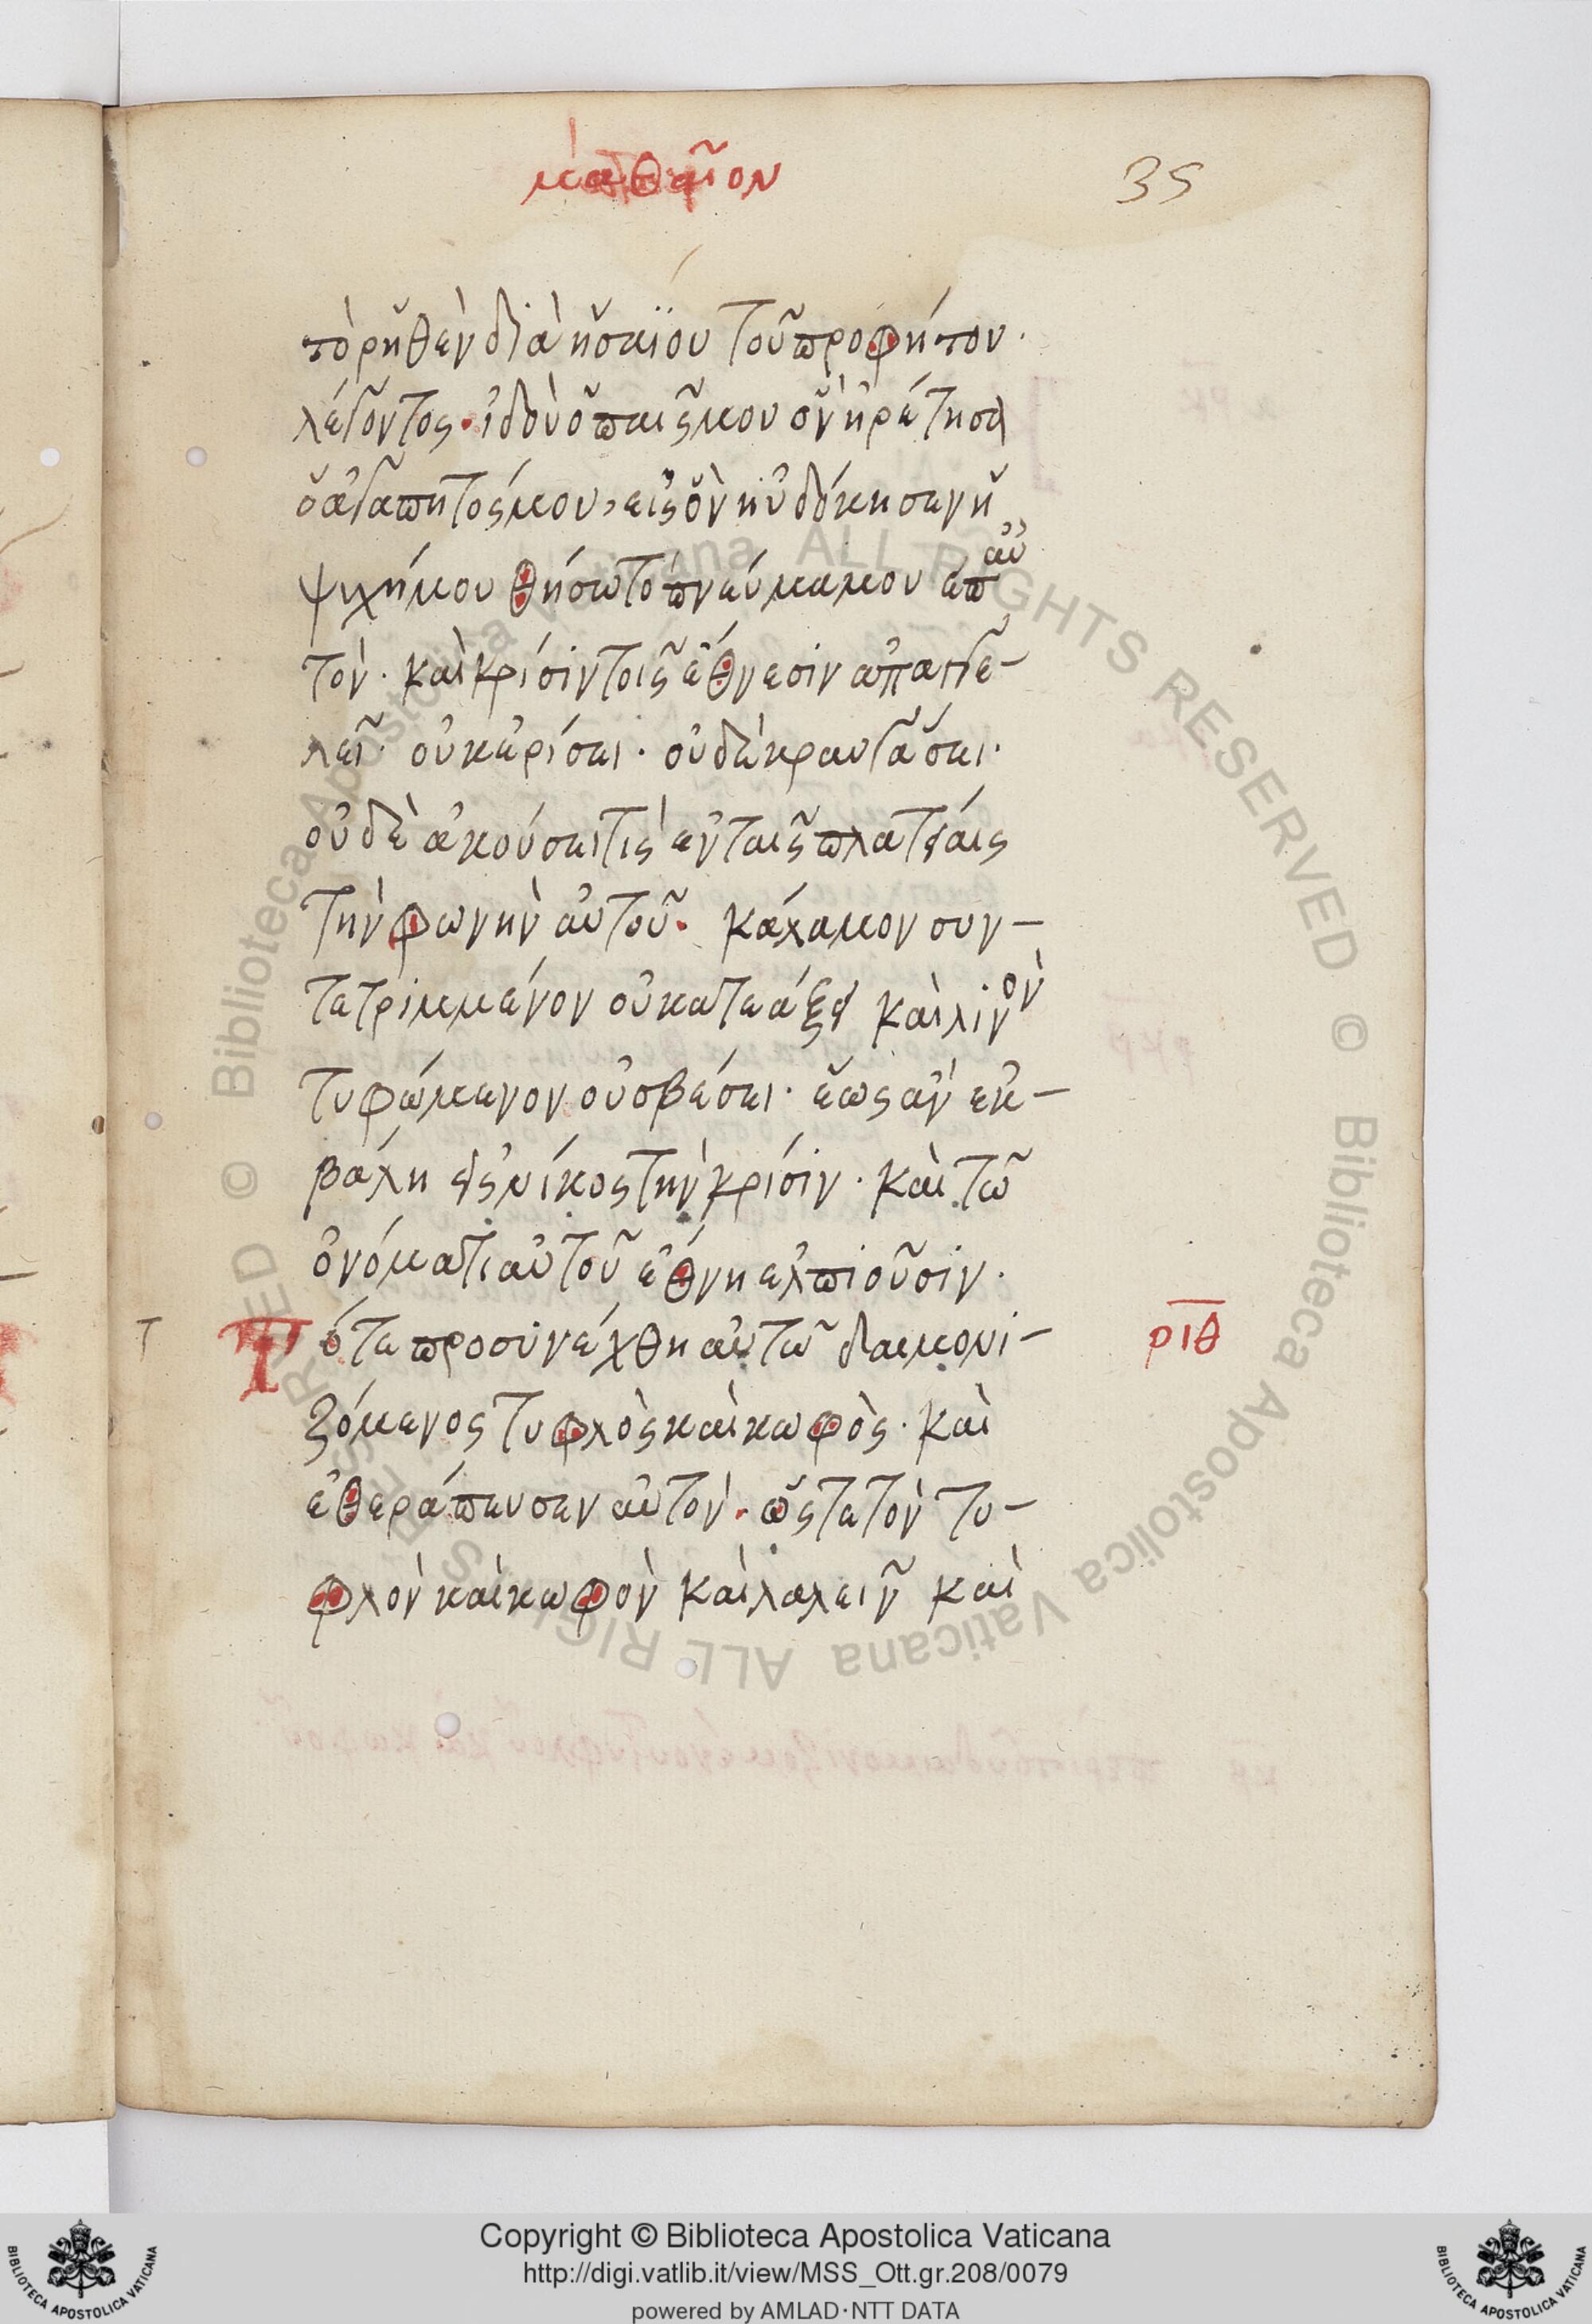 ματθαῖον
35
τὸ ρηθὲν διὰ ἡσαϊου τοῦ προφήτου·
λέγοντος· ἰδοὺ ὁ παῖς μου ὃν ἡρέτησα
ὁ ἀγαπητός μου, εἰς ὃν ηὐδόκησεν ἡ
ψυχή μου θήσω τὸ πνεύμα μου επ αὐ
τόν· καὶ κρίσιν τοῖς ἔθνεσιν ἀπαγγε-
λεῖ· οὐκ ἐρίσει· οὐδὲ κραυγάσει·
οὐδὲ ἀκούσει τὶς ἐν ταῖς πλατείαις
τὴν φωνὴν αὐτοῦ· κάλαμον συν-
τετριμμένον οὐ κατεάξει καὶ λίνον
τυφώμενον οὐ σβέσει· ἕως ἂν ἐκ-
βάλη εἰς νίκος τὴν κρίσιν· καὶ τῶ
ὀνόματι αὐτοῦ ἔθνη ἐλπιοῦσιν·
Τ Τότε προσυνέχθη αὐτῶ δαιμονι- ριθ
ζόμενος τυφλὸς καὶ κωφὸς· καὶ
ἐθεράπευσεν αὐτὸν· ὥστε τὸν τυ-
φλὸν καὶ κωφὸν καὶ λαλεῖν καὶ
© Biblioteca Apostolica Vaticana ALL RIGHTS RESERVED © Biblioteca Apostolica Vaticana ALL RIGHTS RESERVED
Copyright © Biblioteca Apostolica Vaticana
http://digi.vatlib.it/view/MSS_Ott.gr.208/0079
powered by AMLAD·NTT DATA
BIBLIOTECA APOSTOLICA VATICANA
BIBLIOTECA APOSTOLICA VATICANA